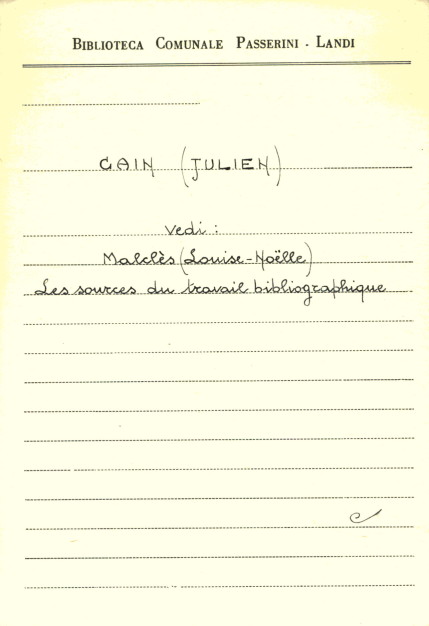 BIBLIOTECA COMUNALE PASSERINI - LANDI
CAIN (JULIEN)
Vedi :
Malclès (Louise-Noëlle)
Les sources du travail bibliographique